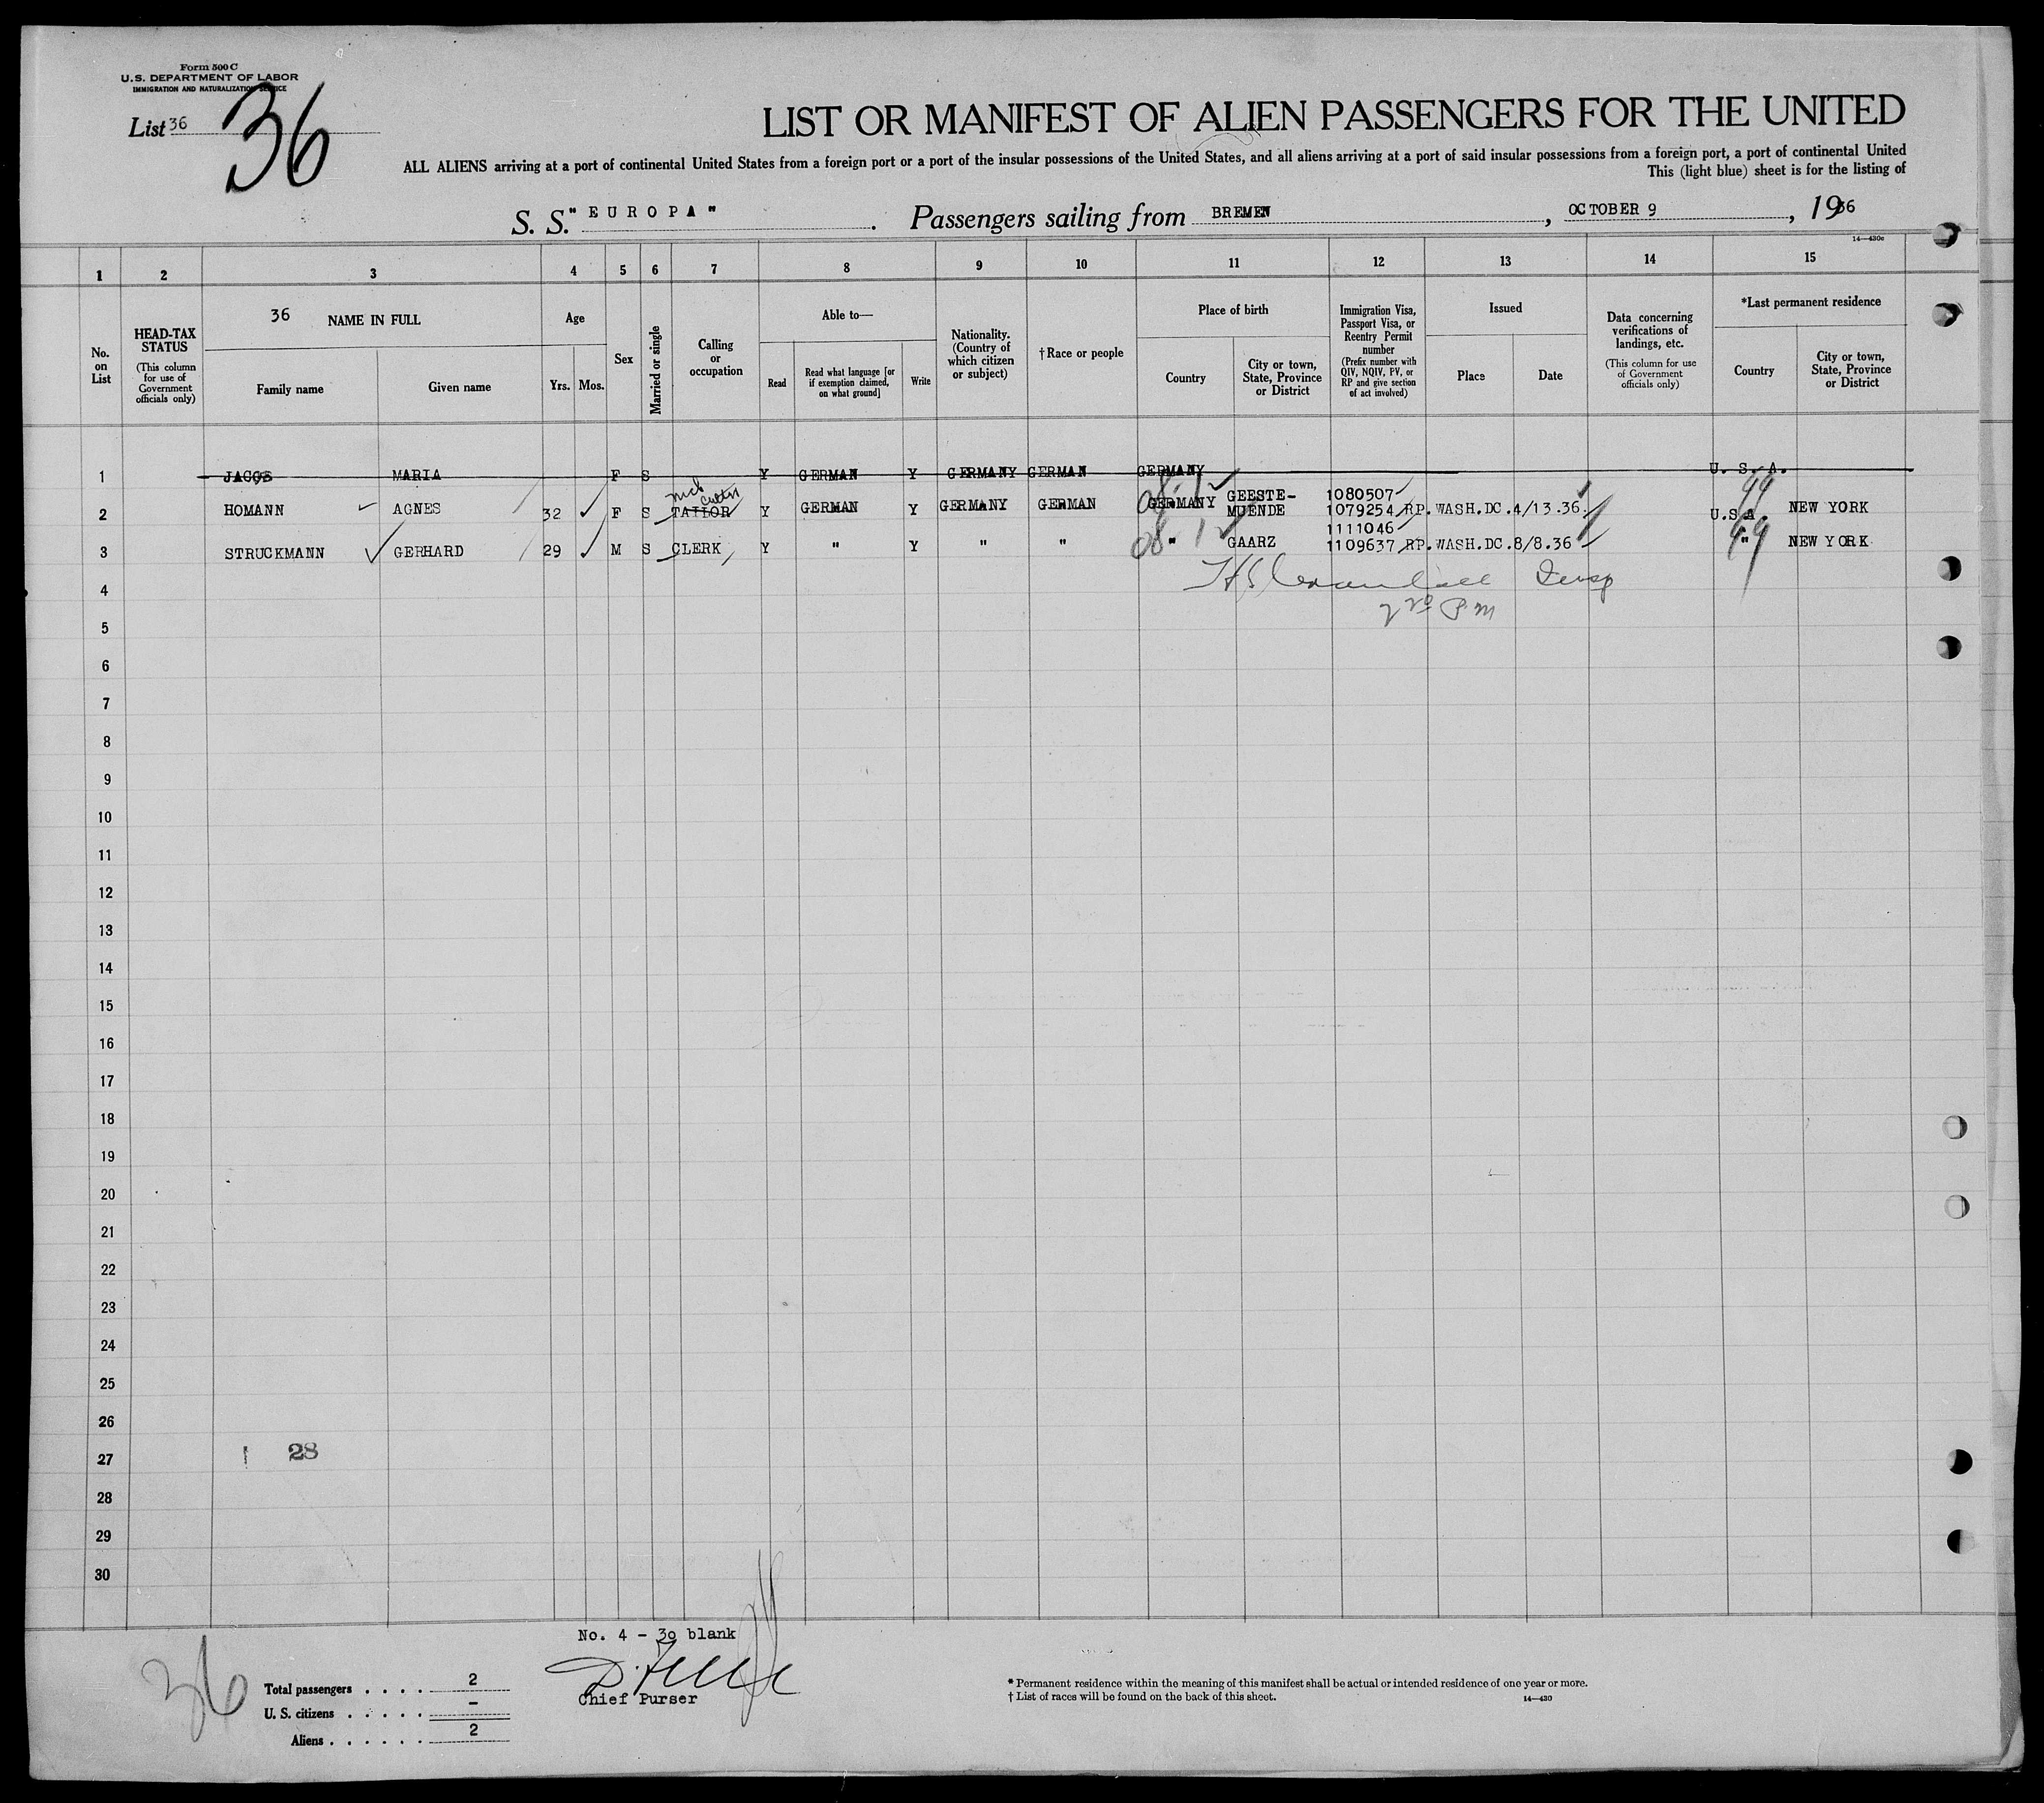 Form 500 C
U.S. DEPARTMENT OF LABOR
IMMIGRATION AND NATURALIZATION SERVICE
List 36
36
LIST OR MANIFEST OF ALIEN PASSENGERS FOR THE UNITED
ALL ALIENS arriving at a port of continental United States from a foreign port or a port of the insular possessions of the United States, and all aliens arriving at a port of said insular possessions from a foreign port, a port of continental United
This (light blue) sheet is for the listing of
S. S. "EUROPA". Passengers sailing from BREMEN, OCTOBER 9, 1936
14—430c
1 2 3 4 5 6 7 8 9 10 11 12 13 14 15
No. on List
HEAD-TAX STATUS (This column for use of Government officials only)
36 NAME IN FULL
Family name Given name
Age
Yrs. Mos.
Sex
Married or single
Calling or occupation
Able to—
Read
Read what language [or if exemption claimed, on what ground]
Write
Nationality. (Country of which citizen or subject)
†Race or people
Place of birth
Country
City or town, State, Province or District
Immigration Visa, Passport Visa, or Reentry Permit number (Prefix number with QIV, NQIV, PV, or RP and give section of act involved)
Issued
Place Date
Data concerning verifications of landings, etc. (This column for use of Government officials only)
*Last permanent residence
Country
City or town, State, Province or District
1 JACOB MARIA F S Y GERMAN Y GERMANY GERMAN GERMANY U. S. A.
2 HOMANN AGNES 32 F S TAILOR Y GERMAN Y GERMANY GERMAN GERMANY GEESTE-MUENDE 1080507 1079254 RP. WASH.DC. 4/13.36. U.S.A. 99 NEW YORK
3 STRUCKMANN GERHARD 29 M S CLERK Y " Y " " 08 " GAARZ 1111046 1109637 RP. WASH.DC. 8/8.36 " 99 NEW YORK
4 Insp
5 P.M
6
7
8
9
10
11
12
13
14
15
16
17
18
19
20
21
22
23
24
25
26
27 28
28
29
30
No. 4 - 30 blank
Chief Purser
36
Total passengers . . . . 2
U. S. citizens . . . . . –
Aliens . . . . . . 2
* Permanent residence within the meaning of this manifest shall be actual or intended residence of one year or more.
† List of races will be found on the back of this sheet.
14—430